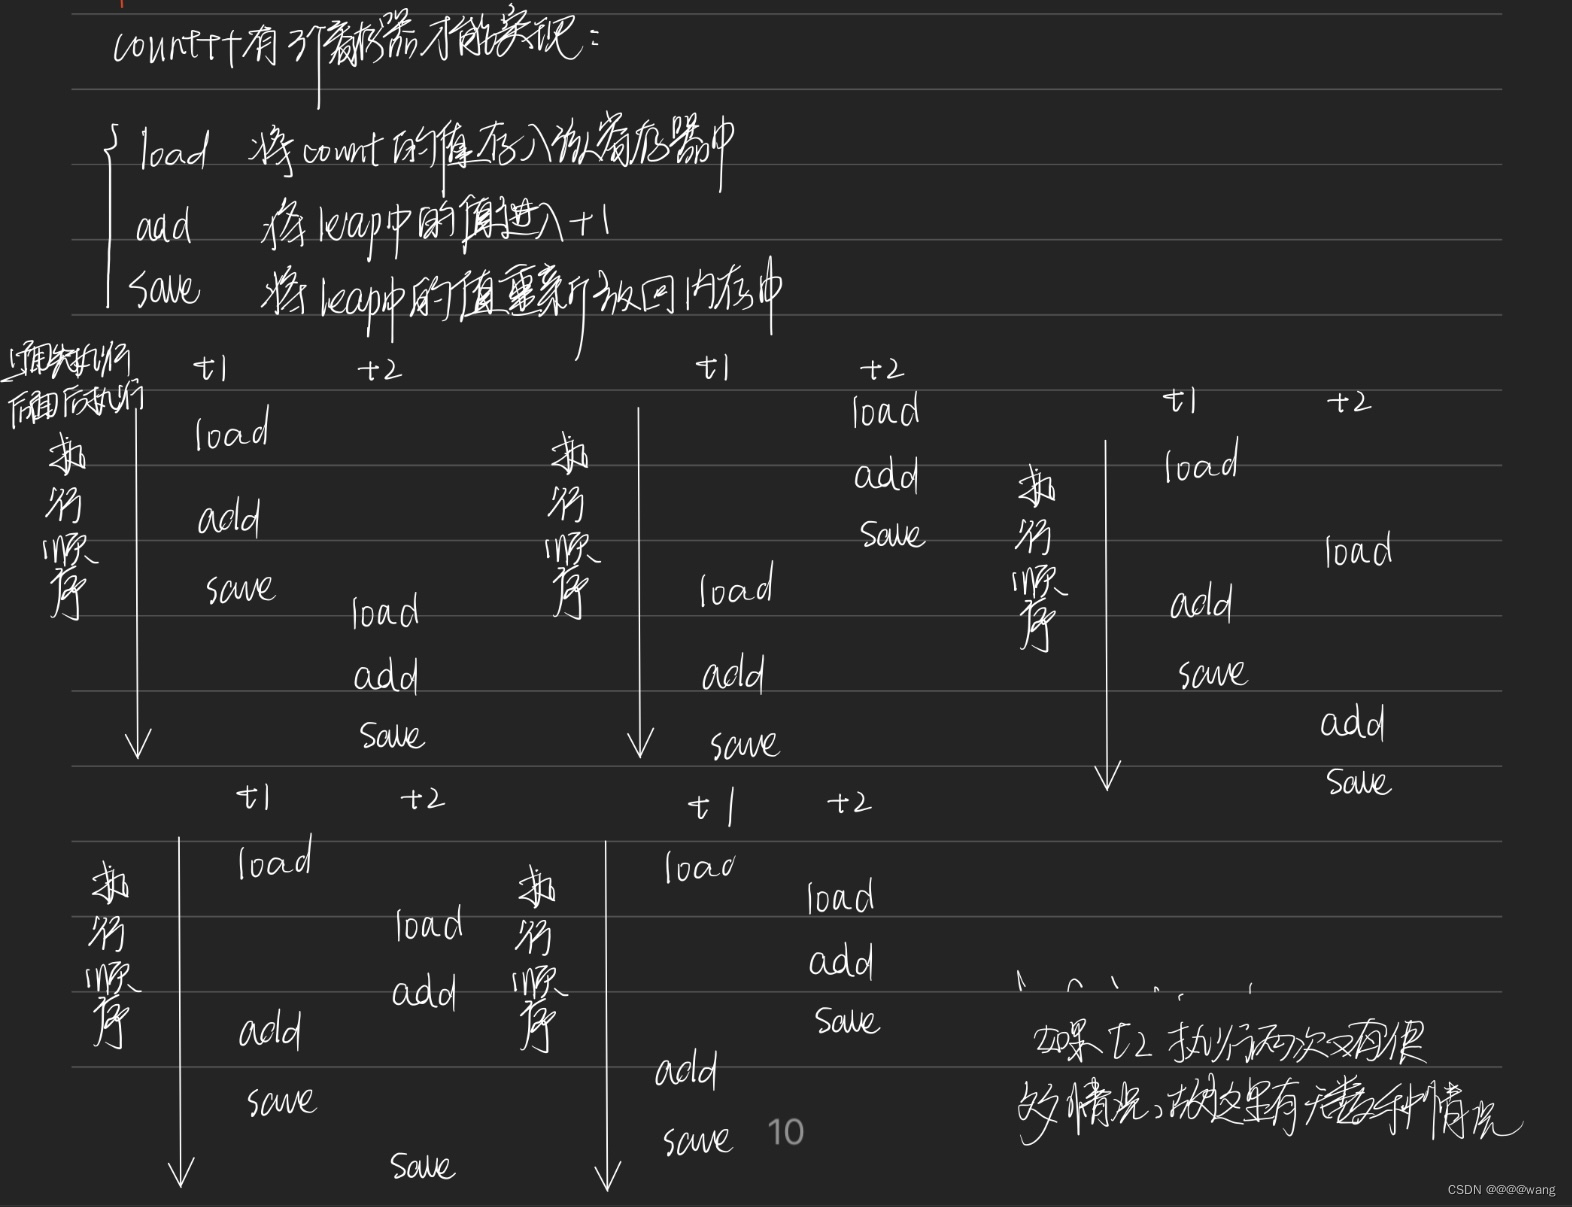 count++有3个寄存器才能实现：
load 将count的值存入放入寄存器中
add 将leap中的值进入+1
save 将leap中的值重新放回内存中
上面先执行
后面后执行
执行顺序
t1 t2
load
add
save
load
add
save
执行顺序
t1 t2
load
add
save
load
add
save
执行顺序
t1 t2
load
load
add
save
add
save
执行顺序
t1 t2
load
load
add
add
save
save
执行顺序
t1 t2
load
load
add
save
add
save
10
如果t2执行两次又有很
多情况，故这里有无数种情况
CSDN @@@@wang